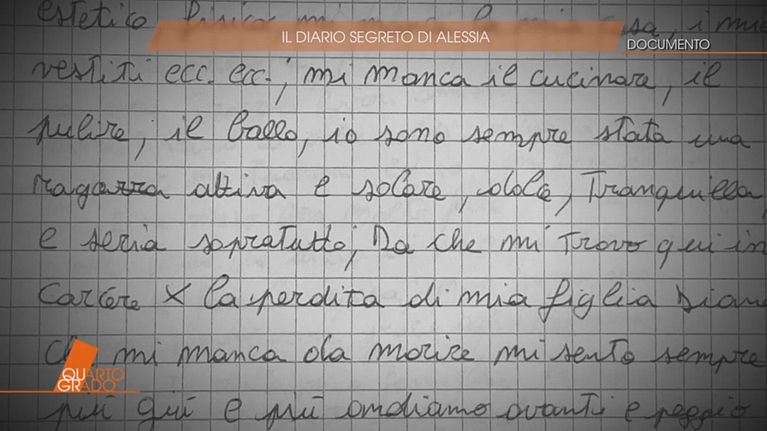 IL DIARIO SEGRETO DI ALESSIA
DOCUMENTO
estetico mi casa, i miei
vestiti ecc. ecc., mi manca il cucinare, il
pulire, il ballo, io sono sempre stata una
ragazza attiva e solare, dolce, Tranquilla,
e seria sopratutto, Da che mi Trovo qui in
Carcere x la perdita di mia figlia Diana
Che mi manca da morire mi sento sempre
più giù e più andiamo avanti e peggio
QUARTO
GRADO